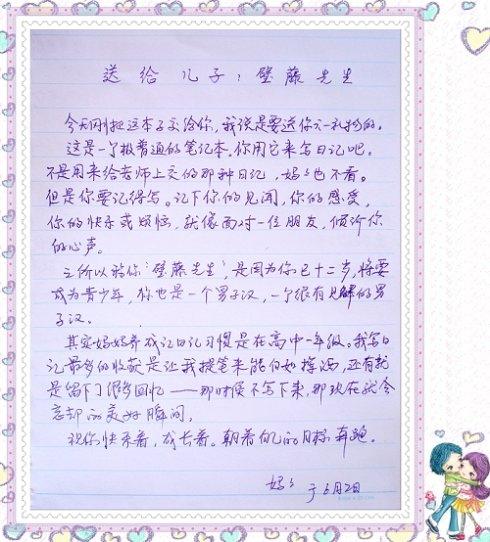 送给儿子：壁藤先生
今天刚把这本子交给你，我说是要送你六一礼物的。
这是一个极普通的笔记本。你用它来写日记吧。
不是用来给老师上交的那种日记，妈妈也不看。
但是你要记得写。记下你的见闻，你的感受，
你的快乐或烦恼，就像面对一位朋友，倾诉你
的心声。
之所以称你“壁藤先生”，是因为你已十二岁，将要
成为青少年，你也是一个男子汉，一个很有见解的男
子汉。
其实妈妈养成记日记习惯是在高中一年级。我写日
记最多的收获是让我提笔来能自如挥洒，还有就
是留下了很多回忆——那时候不写下来，那现在就会
忘却的美好瞬间。
祝你快乐着，成长着。朝着自己的目标奔跑。
妈妈 于6月2日